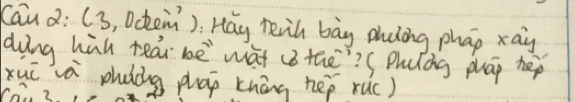 Câu 2: (3,0 điểm). Hãy trình bày phương pháp xây
dựng hình trải bề mặt cơ thể? (Phương pháp tiếp
xúc và phương pháp không tiếp xúc)
Câu 3